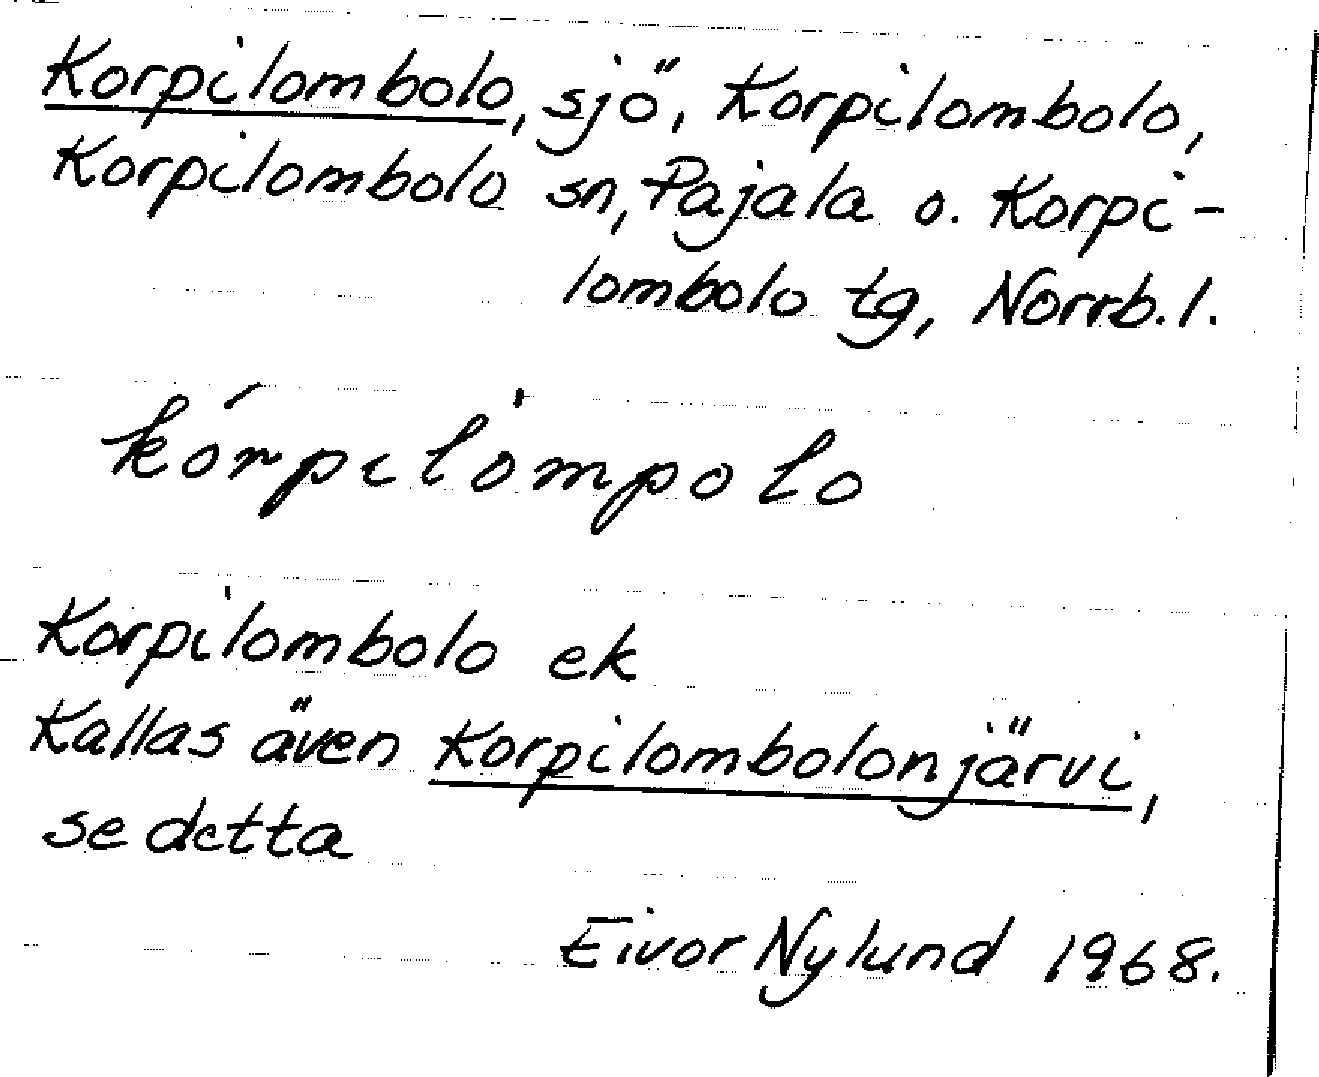 Korpilombolo, sjö, Korpilombolo,
Korpilombolo sn, Pajala o. Korpi-
lombolo tg, Norrb.l.
kórpilòmpolo
Korpilombolo ek
Kallas även Korpilombolonjärvi,
se detta
Eivor Nylund 1968.